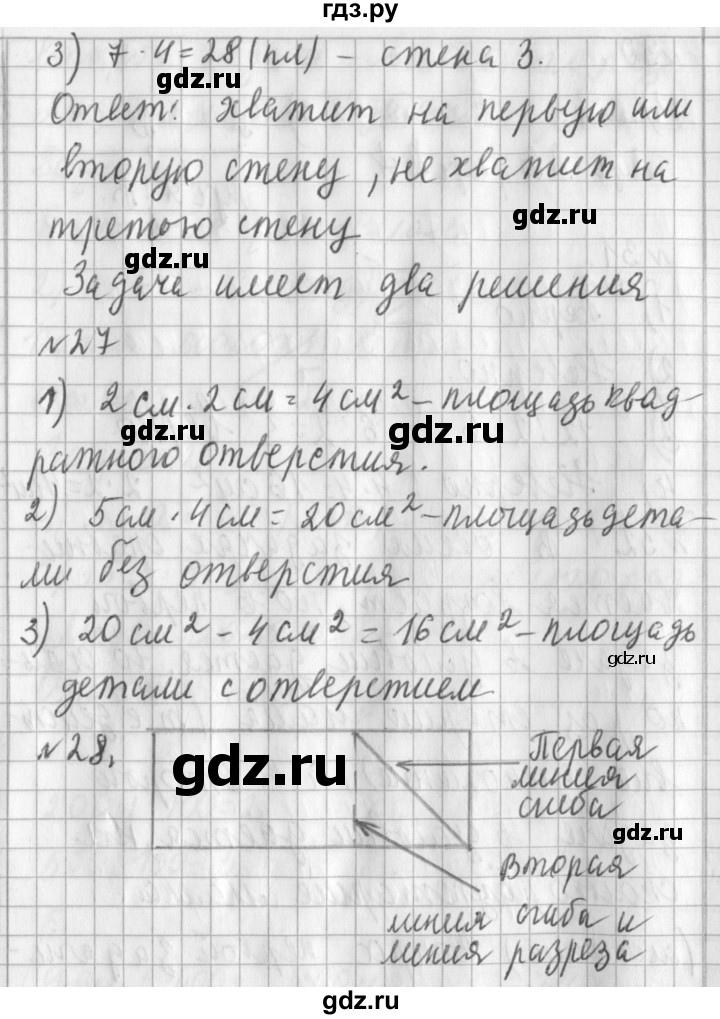 гдз.ру
3) 7 · 4 = 28 (пл) – стена 3.
gdz.ru
Ответ: хватит на первую или
вторую стену, не хватит на
gdz.ru
третью стену
gdz.ru
Задача имеет два решения
№27
1) 2 см · 2 см = 4 см² – площадь квад-
gdz.ru gdz.ru
ратного отверстия.
2) 5 см · 4 см = 20 см² – площадь дета-
ли без отверстия
3) 20 см² – 4 см² = 16 см² – площадь
gdz.ru
детали с отверстием
gdz.ru
№28.
gdz.ru
Первая
линия
сгиба
gdz.ru
Вторая
линия сгиба и
линия разреза
gdz.ru